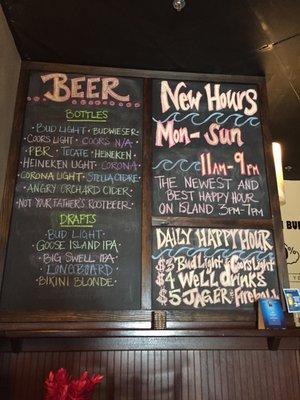 BEER
BOTTLES
BUD LIGHT · BUDWEISER
COORS LIGHT · COORS N/A
PBR · TECATE · HEINEKEN
HEINEKEN LIGHT · CORONA
CORONA LIGHT · STELLA CIDRE
· ANGRY ORCHARD CIDER ·
· NOT YOUR FATHER'S ROOTBEER ·
DRAFTS
· BUD LIGHT ·
· GOOSE ISLAND IPA ·
· BIG SWELL IPA ·
· LONGBOARD ·
· BIKINI BLONDE ·
NEW HOURS
MON-SUN
11AM-9PM
THE NEWEST AND
BEST HAPPY HOUR
ON ISLAND 3PM-7PM
DAILY HAPPY HOUR
$3 BUD LIGHT & COORS LIGHT
$4 WELL DRINKS
$5 JAGER & FIREBALL